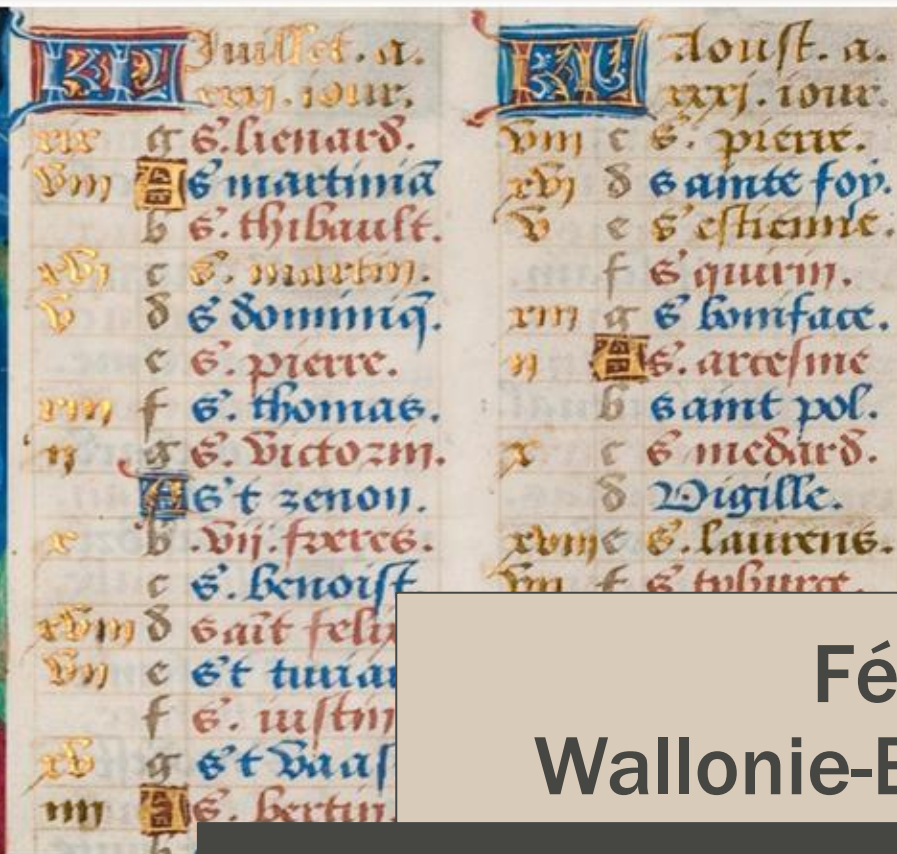 KL Juillet. a.
xxxi. iour.
xix g S. lienard.
viii A S martinia͞
b S. thibault.
xvi c S. martin.
v d S dominiq̄.
e S. pierre.
xiii f S. thomas.
ii g S. victorin.
A S't zenon.
x b .vii. freres.
c S. benoist
xviii d sait felix
vii e S't turia
f S. iustin
xv g S't vaas
iiii A S. bertin.
b
KL Aoust. a.
xxxj. iour.
viii c S. pierre.
xvi d sainte foy.
v e S' estienne.
f S' quirin.
xiii g S' boniface.
ii A S. artesme
b saint pol.
x c S' medard.
d Vigille.
xviii e S. laurens.
vii f S' tyburce.
Fé
Wallonie-B